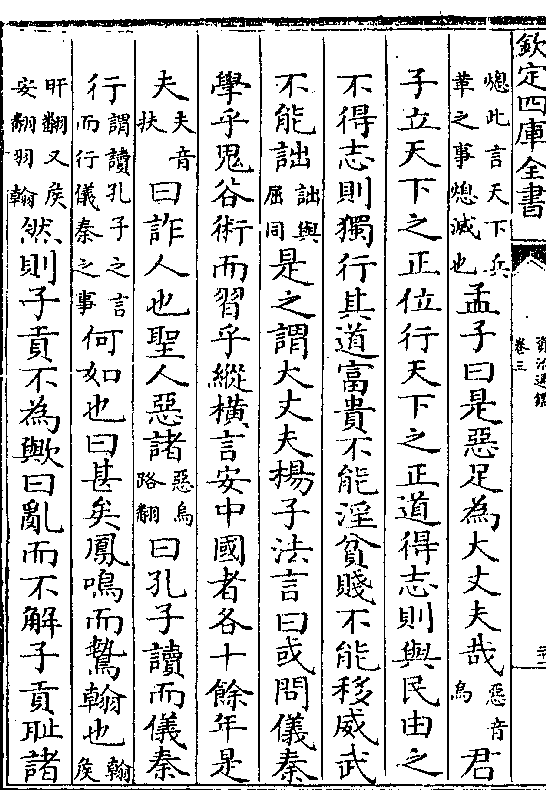 欽定四庫全書
資治通鑑
卷三
熄此言天下兵革之事熄滅也孟子曰是惡足為大丈夫哉惡音烏君
子立天下之正位行天下之正道得志則與民由之
不得志則獨行其道富貴不能淫貧賤不能移威武
不能詘詘與屈同是之謂大丈夫楊子法言曰或問儀秦
學乎鬼谷術而習乎縱橫言安中國者各十餘年是
夫夫音扶曰詐人也聖人惡諸惡烏路翻曰孔子讀而儀秦
行謂讀孔子之言而行儀秦之事何如也曰甚矣鳳鳴而鷙翰也翰侯
旰翻又侯安翻羽翰然則子貢不為歟曰亂而不解子貢耻諸